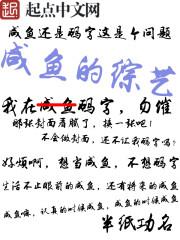 起点中文网
咸鱼还是码字这是个问题
咸鱼的综艺
我在咸鱼码字，勿催
那张封面看腻了，换一张吧！
不会做封面，还不让我码字吗？
好烦啊，想当咸鱼，不想码字
生活不止眼前的咸鱼，还有将来的咸鱼
咸鱼嘛，认真的时候咸鱼，咸的时候成咸鱼
半纸功名